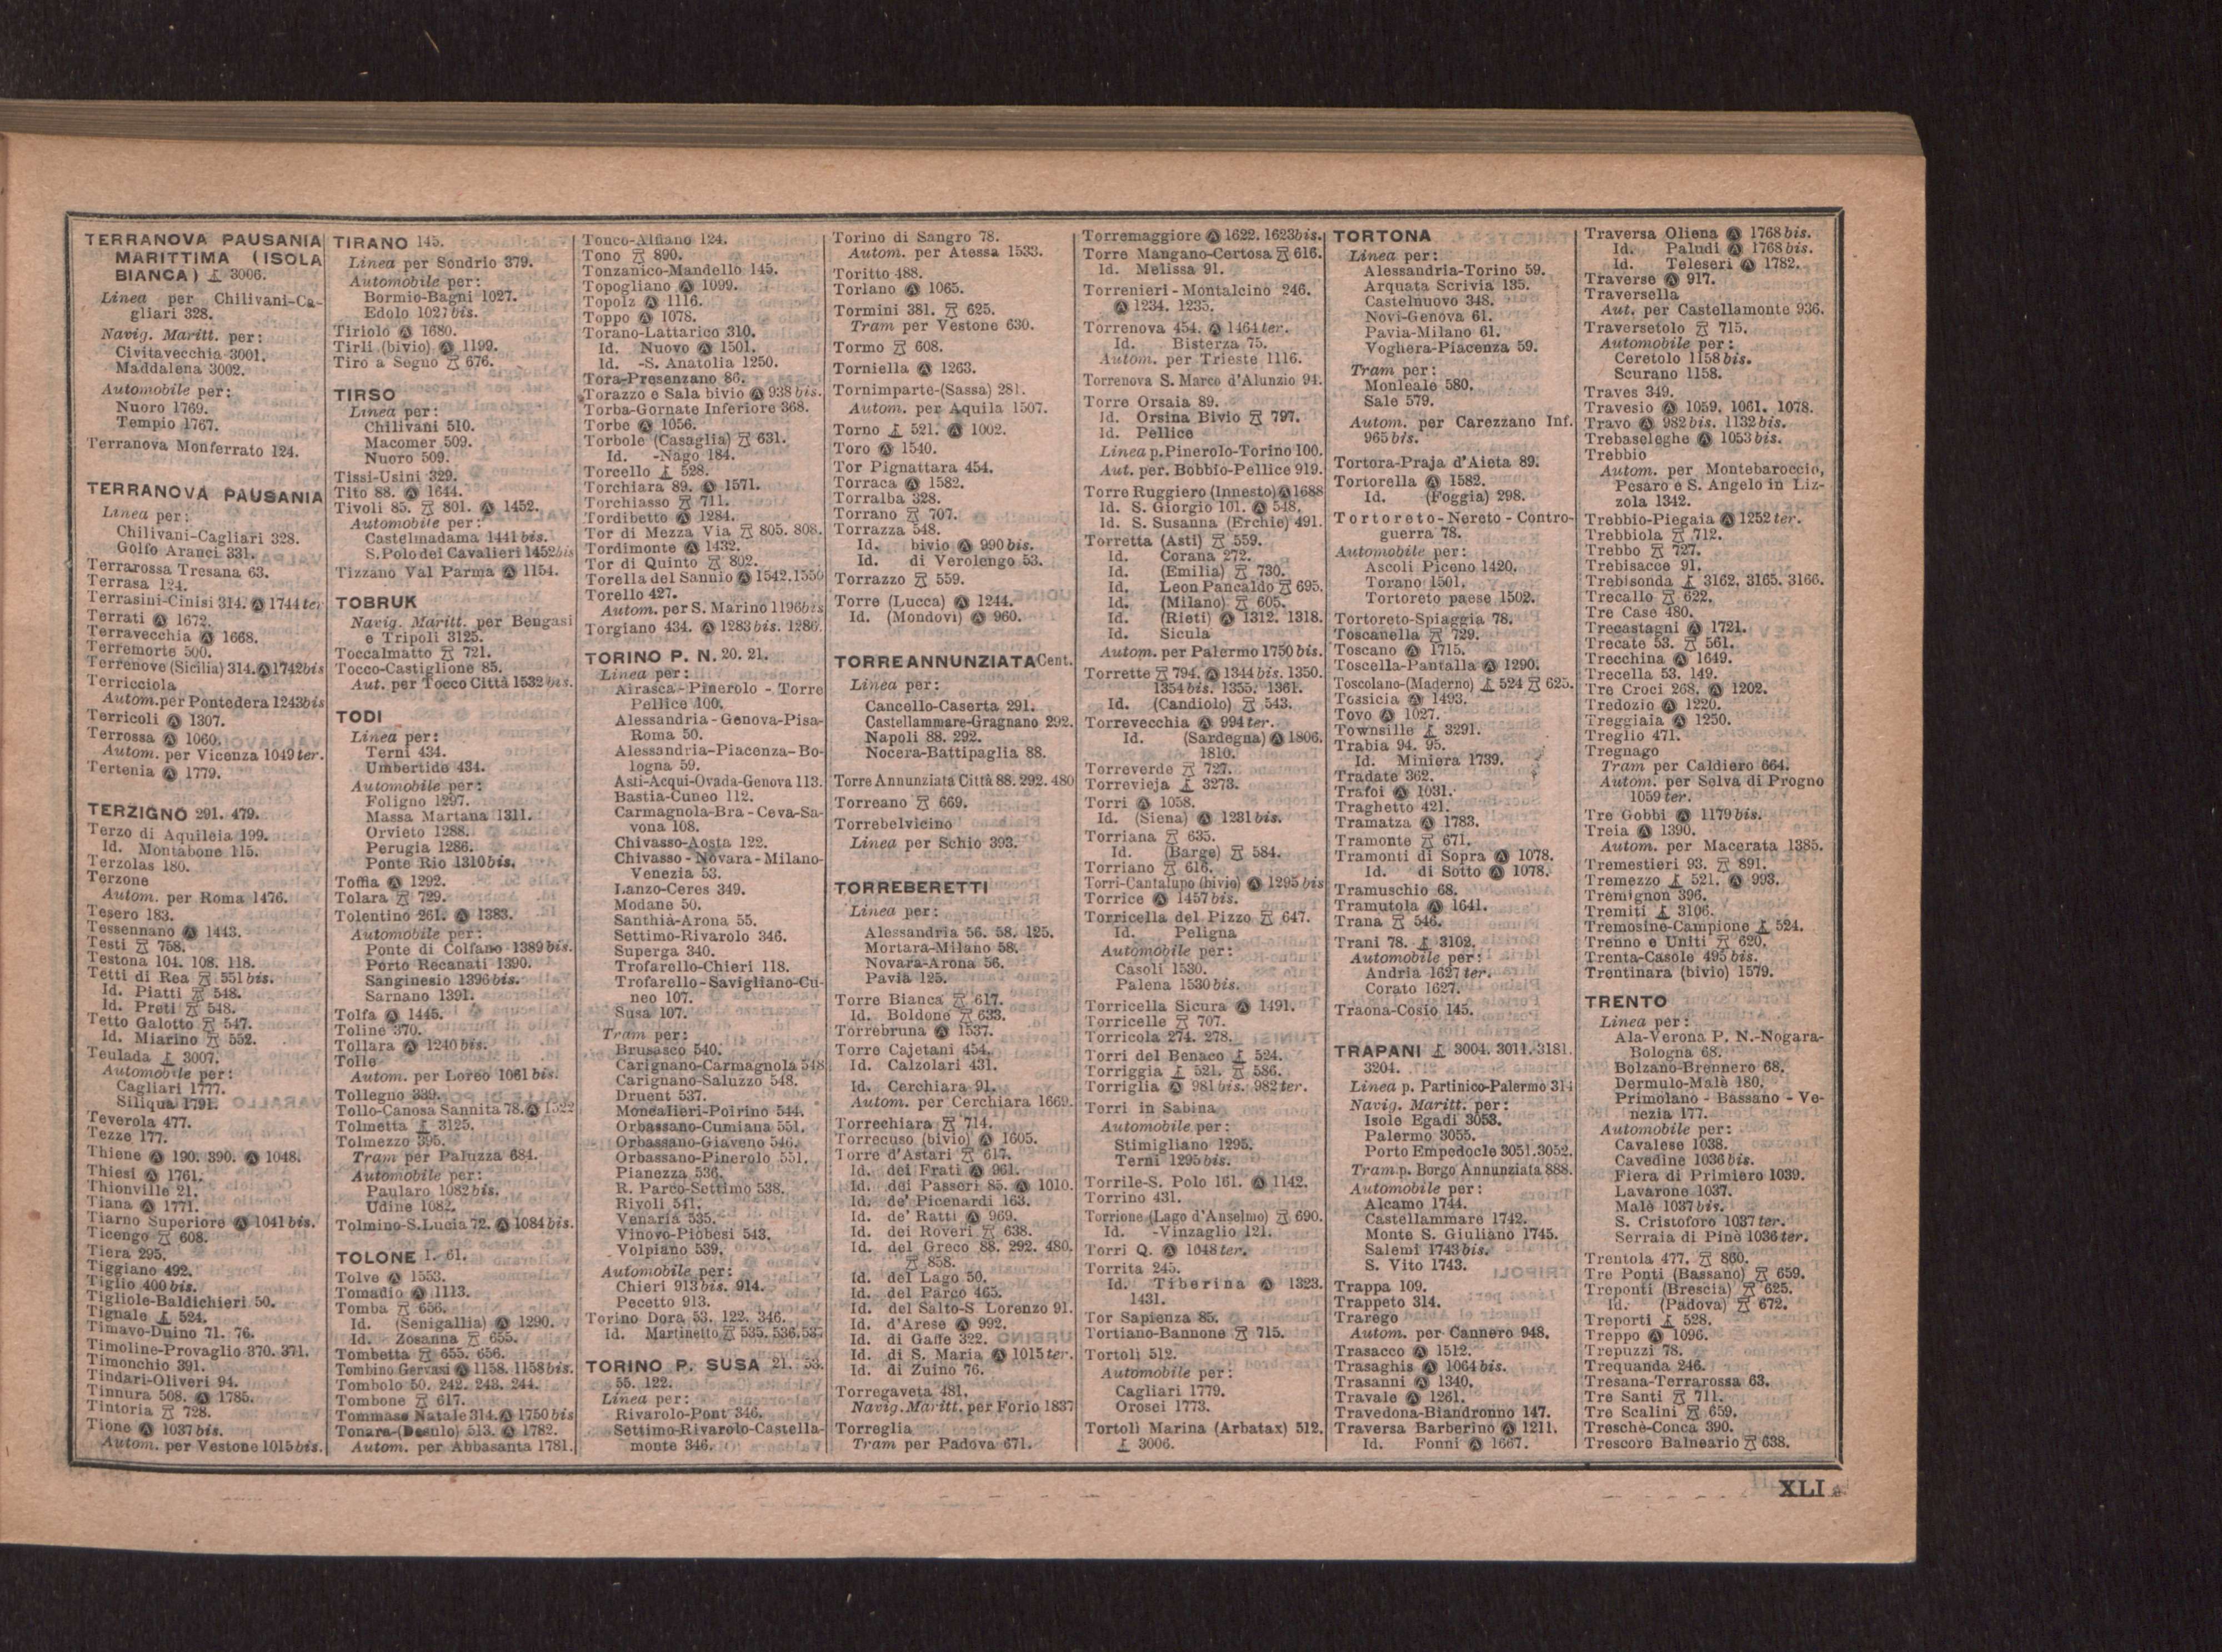 TERRANOVA PAUSANIA
MARITTIMA (ISOLA
BIANCA) 3006.
Linea per Chilivani-Ca-
gliari 328.
Navig. Maritt. per:
Civitavecchia 3001.
Maddalena 3002.
Automobile per:
Nuoro 1769.
Tempio 1767.
Terranova Monferrato 124.
TERRANOVA PAUSANIA
Linea per:
Chilivani-Cagliari 328.
Golfo Aranci 331.
Terrarossa Tresana 63.
Terrasa 124.
Terrasini-Cinisi 314. Ⓐ 1744 ter
Terrati Ⓐ 1672.
Terravecchia Ⓐ 1668.
Terremorte 500.
Terrenove (Sicilia) 314. Ⓐ 1742bis
Terricciola
Autom. per Pontedera 1243bis
Terricoli Ⓐ 1307.
Terrossa Ⓐ 1060.
Autom. per Vicenza 1049 ter.
Tertenia Ⓐ 1779.
TERZIGNO 291. 479.
Terzo di Aquileia 199.
Id. Montabone 115.
Terzolas 180.
Terzone
Autom. per Roma 1476.
Tesero 183.
Tessennano Ⓐ 1443.
Testi 758.
Testona 104. 108. 118.
Tetti di Rea 551 bis.
Id. Piatti 548.
Id. Preti 548.
Tetto Galotto 547.
Id. Miarino 552.
Teulada 3007.
Automobile per:
Cagliari 1777.
Siliqua 1791.
Teverola 477.
Tezze 177.
Thiene Ⓐ 190. 390. Ⓐ 1048.
Thiesi Ⓐ 1761.
Thionville 21.
Tiana Ⓐ 1771.
Tiarno Superiore Ⓐ 1041 bis.
Ticengo 608.
Tiera 295.
Tiggiano 492.
Tiglio 400 bis.
Tigliole-Baldichieri 50.
Tignale 524.
Timavo-Duino 71. 76.
Timoline-Provaglio 370. 371.
Timonchio 391.
Tindari-Oliveri 94.
Tinnura 508. Ⓐ 1785.
Tintoria 728.
Tione Ⓐ 1037 bis.
Autom. per Vestone 1015 bis.
TIRANO 145.
Linea per Sondrio 379.
Automobile per:
Bormio-Bagni 1027.
Edolo 1027 bis.
Tiriolo Ⓐ 1680.
Tirli (bivio) Ⓐ 1199.
Tiro a Segno 676.
TIRSO
Linea per:
Chilivani 510.
Macomer 509.
Nuoro 509.
Tissi-Usini 329.
Tito 88. Ⓐ 1644.
Tivoli 85. 801. Ⓐ 1452.
Automobile per:
Castelmadama 1441 bis.
S. Polo dei Cavalieri 1452bis
Tizzano Val Parma Ⓐ 1154.
TOBRUK
Navig. Maritt. per Bengasi
e Tripoli 3125.
Toccalmatto 721.
Tocco-Castiglione 85.
Aut. per Tocco Città 1532 bis.
TODI
Linea per:
Terni 434.
Umbertide 434.
Automobile per:
Foligno 1297.
Massa Martana 1311.
Orvieto 1288.
Perugia 1286.
Ponte Rio 1310bis.
Toffia Ⓐ 1292.
Tolara 729.
Tolentino 261. Ⓐ 1383.
Automobile per:
Ponte di Colfano 1389 bis.
Porto Recanati 1390.
Sanginesio 1396 bis.
Sarnano 1391.
Tolfa Ⓐ 1445.
Toline 370.
Tollara Ⓐ 1240 bis.
Tolle
Autom. per Loreo 1061 bis.
Tollegno 339.
Tollo-Canosa Sannita 78. Ⓐ 1522
Tolmetta 3125.
Tolmezzo 395.
Tram per Paluzza 684.
Automobile per:
Paularo 1082 bis.
Udine 1082.
Tolmino-S. Lucia 72. Ⓐ 1084 bis.
TOLONE 1. 61.
Tolve Ⓐ 1553.
Tomadio Ⓐ 1113.
Tomba 656.
Id. (Senigallia) Ⓐ 1290.
Id. Zosanna 655.
Tombetta 655. 656.
Tombino Gervasi Ⓐ 1158. 1158 bis.
Tombolo 50. 242. 243. 244.
Tombone 617.
Tommaso Natale 314. Ⓐ 1750 bis
Tonara-(Desulo) 513. Ⓐ 1782.
Autom. per Abbasanta 1781.
Tonco-Alfiano 124.
Tono 890.
Tonzanico-Mandello 145.
Topogliano Ⓐ 1099.
Topolz Ⓐ 1116.
Toppo Ⓐ 1078.
Torano-Lattarico 310.
Id. Nuovo Ⓐ 1501.
Id. -S. Anatolia 1250.
Tora-Presenzano 86.
Torazzo e Sala bivio Ⓐ 938 bis.
Torba-Gornate Inferiore 368.
Torbe Ⓐ 1056.
Torbole (Casaglia) 631.
Id. -Nago 184.
Torcello 528.
Torchiara 89. Ⓐ 1571.
Torchiasso 711.
Tordibetto Ⓐ 1284.
Tor di Mezza Via 805. 808.
Tordimonte Ⓐ 1432.
Tor di Quinto 802.
Torella del Sannio Ⓐ 1542.1550
Torello 427.
Autom. per S. Marino 1196bis
Torgiano 434. Ⓐ 1283 bis. 1286.
TORINO P. N. 20. 21.
Linea per:
Airasca-Pinerolo - Torre
Pellice 100.
Alessandria-Genova-Pisa-
Roma 50.
Alessandria-Piacenza-Bo-
logna 59.
Asti-Acqui-Ovada-Genova 113.
Bastia-Cuneo 112.
Carmagnola-Bra-Ceva-Sa-
vona 108.
Chivasso-Aosta 122.
Chivasso-Novara-Milano-
Venezia 53.
Lanzo-Ceres 349.
Modane 50.
Santhià-Arona 55.
Settimo-Rivarolo 346.
Superga 340.
Trofarello-Chieri 118.
Trofarello-Savigliano-Cu-
neo 107.
Susa 107.
Tram per:
Brusasco 540.
Carignano-Carmagnola 548
Carignano-Saluzzo 548.
Druent 537.
Moncalieri-Poirino 544.
Orbassano-Cumiana 551.
Orbassano-Giaveno 546.
Orbassano-Pinerolo 551.
Pianezza 536.
R. Parco-Settimo 538.
Rivoli 541.
Venaria 535.
Vinovo-Piobesi 543.
Volpiano 539.
Automobile per:
Chieri 913 bis. 914.
Pecetto 913.
Torino Dora 53. 122. 346.
Id. Martinetto 535. 536.537
TORINO P. SUSA 21. 53.
55. 122.
Linea per:
Rivarolo-Pont 346.
Settimo-Rivarolo-Castella-
monte 346.
Torino di Sangro 78.
Autom. per Atessa 1533.
Toritto 488.
Torlano Ⓐ 1065.
Tormini 381. 625.
Tram per Vestone 630.
Tormo 608.
Torniella Ⓐ 1263.
Tornimparte-(Sassa) 281.
Autom. per Aquila 1507.
Torno 521. Ⓐ 1002.
Toro Ⓐ 1540.
Tor Pignattara 454.
Torraca Ⓐ 1582.
Torralba 328.
Torrano 707.
Torrazza 548.
Id. bivio Ⓐ 990 bis.
Id. di Verolengo 53.
Torrazzo 559.
Torre (Lucca) Ⓐ 1244.
Id. (Mondovì) Ⓐ 960.
TORREANNUNZIATA Cent.
Linea per:
Cancello-Caserta 291.
Castellammare-Gragnano 292.
Napoli 88. 292.
Nocera-Battipaglia 88.
Torre Annunziata Città 88. 292. 480
Torreano 669.
Torrebelvicino
Linea per Schio 393.
TORREBERETTI
Linea per:
Alessandria 56. 58. 125.
Mortara-Milano 58.
Novara-Arona 56.
Pavia 125.
Torre Bianca 617.
Id. Boldone 633.
Torrebruna Ⓐ 1537.
Torre Cajetani 454.
Id. Calzolari 431.
Id. Cerchiara 91.
Autom. per Cerchiara 1669.
Torrechiara 714.
Torrecuso (bivio) Ⓐ 1605.
Torre d'Astari 617.
Id. dei Frati Ⓐ 961.
Id. dei Passeri 85. Ⓐ 1010.
Id. de' Picenardi 163.
Id. de' Ratti Ⓐ 969.
Id. dei Roveri 638.
Id. del Greco 88. 292. 480.
858.
Id. del Lago 50.
Id. del Parco 465.
Id. del Salto-S Lorenzo 91.
Id. d'Arese Ⓐ 992.
Id. di Gaffe 322.
Id. di S. Maria Ⓐ 1015 ter.
Id. di Zuino 76.
Torregaveta 481.
Navig. Maritt. per Forio 1837
Torreglia
Tram per Padova 671.
Torremaggiore Ⓐ 1622. 1623bis.
Torre Mangano-Certosa 616.
Id. Melissa 91.
Torrenieri-Montalcino 246.
Ⓐ 1234. 1235.
Torrenova 454. Ⓐ 1464 ter.
Id. Bisterza 75.
Autom. per Trieste 1116.
Torrenova S. Marco d'Alunzio 94.
Torre Orsaia 89.
Id. Orsina Bivio 797.
Id. Pellice
Linea p. Pinerolo-Torino 100.
Aut. per. Bobbio-Pellice 919.
Torre Ruggiero (Innesto) Ⓐ 1688
Id. S. Giorgio 101. Ⓐ 548.
Id. S. Susanna (Erchie) 491.
Torretta (Asti) 559.
Id. Corana 272.
Id. (Emilia) 730.
Id. Leon Pancaldo 695.
Id. (Milano) 605.
Id. (Rieti) Ⓐ 1312. 1318.
Id. Sicula
Autom. per Palermo 1750 bis.
Torrette 794. Ⓐ 1344 bis. 1350.
1354 bis. 1355. 1361.
Id. (Candiolo) 543.
Torrevecchia Ⓐ 994 ter.
Id. (Sardegna) Ⓐ 1806.
1810.
Torreverde 727.
Torrevieja 3273.
Torri Ⓐ 1058.
Id. (Siena) Ⓐ 1231 bis.
Torriana 635.
Id. (Barge) 584.
Torriano 616.
Torri-Cantalupo (bivio) Ⓐ 1295 bis
Torrice Ⓐ 1457 bis.
Torricella del Pizzo 647.
Id. Peligna
Automobile per:
Casoli 1530.
Palena 1530 bis.
Torricella Sicura Ⓐ 1491.
Torricelle 707.
Torricola 274. 278.
Torri del Benaco 524.
Torriggia 521. 586.
Torriglia Ⓐ 981 bis. 982 ter.
Torri in Sabina
Automobile per:
Stimigliano 1295.
Terni 1295 bis.
Torrile-S. Polo 161. Ⓐ 1142.
Torrino 431.
Torrione (Lago d'Anselmo) 690.
Id. -Vinzaglio 121.
Torri Q. Ⓐ 1048 ter.
Torrita 245.
Id. Tiberina Ⓐ 1323.
1431.
Tor Sapienza 85.
Tortiano-Bannone 715.
Tortolì 512.
Automobile per:
Cagliari 1779.
Orosei 1773.
Tortolì Marina (Arbatax) 512.
3006.
TORTONA
Linea per:
Alessandria-Torino 59.
Arquata Scrivia 135.
Castelnuovo 348.
Novi-Genova 61.
Pavia-Milano 61.
Voghera-Piacenza 59.
Tram per:
Monleale 580.
Sale 579.
Autom. per Carezzano Inf.
965 bis.
Tortora-Praja d'Aieta 89.
Tortorella Ⓐ 1582.
Id. (Foggia) 298.
Tortoreto-Nereto-Contro-
guerra 78.
Automobile per:
Ascoli Piceno 1420.
Torano 1501.
Tortoreto paese 1502.
Tortoreto-Spiaggia 78.
Toscanella 729.
Toscano Ⓐ 1715.
Toscella-Pantalla Ⓐ 1290.
Toscolano-(Maderno) 524 625.
Tossicia Ⓐ 1493.
Tovo Ⓐ 1027.
Townsille 3291.
Trabia 94. 95.
Id. Miniera 1739.
Tradate 362.
Trafoi Ⓐ 1031.
Traghetto 421.
Tramatza Ⓐ 1783.
Tramonte 671.
Tramonti di Sopra Ⓐ 1078.
Id. di Sotto Ⓐ 1078.
Tramuschio 68.
Tramutola Ⓐ 1641.
Trana 546.
Trani 78. 3102.
Automobile per:
Andria 1627 ter.
Corato 1627.
Traona-Cosio 145.
TRAPANI 3004. 3011. 3181.
3204.
Linea p. Partinico-Palermo 314
Navig. Maritt. per:
Isole Egadi 3053.
Palermo 3055.
Porto Empedocle 3051.3052.
Tram p. Borgo Annunziata 888.
Automobile per:
Alcamo 1744.
Castellammare 1742.
Monte S. Giuliano 1745.
Salemi 1743 bis.
S. Vito 1743.
Trappa 109.
Trappeto 314.
Trarego
Autom. per Cannero 948.
Trasacco Ⓐ 1512.
Trasaghis Ⓐ 1064 bis.
Trasanni Ⓐ 1340.
Travale Ⓐ 1261.
Travedona-Biandronno 147.
Traversa Barberino Ⓐ 1211.
Id. Fonni Ⓐ 1667.
Traversa Oliena Ⓐ 1768 bis.
Id. Paludi Ⓐ 1768 bis.
Id. Teleseri Ⓐ 1782.
Traverse Ⓐ 917.
Traversella
Aut. per Castellamonte 936.
Traversetolo 715.
Automobile per:
Ceretolo 1158 bis.
Scurano 1158.
Traves 349.
Travesio Ⓐ 1059. 1061. 1078.
Travo Ⓐ 982 bis. 1132 bis.
Trebaseleghe Ⓐ 1053 bis.
Trebbio
Autom. per Montebaroccio,
Pesaro e S. Angelo in Liz-
zola 1342.
Trebbio-Piegaia Ⓐ 1252 ter.
Trebbiola 712.
Trebbo 727.
Trebisacce 91.
Trebisonda 3162. 3165. 3166.
Trecallo 622.
Tre Case 480.
Trecastagni Ⓐ 1721.
Trecate 53. 561.
Trecchina Ⓐ 1649.
Trecella 53. 149.
Tre Croci 268. Ⓐ 1202.
Tredozio Ⓐ 1220.
Treggiaia Ⓐ 1250.
Treglio 471.
Tregnago
Tram per Caldiero 664.
Autom. per Selva di Progno
1059 ter.
Tre Gobbi Ⓐ 1179 bis.
Treia Ⓐ 1390.
Autom. per Macerata 1385.
Tremestieri 93. 891.
Tremezzo 521. Ⓐ 993.
Tremignon 396.
Tremiti 3106.
Tremosine-Campione 524.
Trenno e Uniti 620.
Trenta-Casole 495 bis.
Trentinara (bivio) 1579.
TRENTO
Linea per:
Ala-Verona P. N.-Nogara-
Bologna 68.
Bolzano-Brennero 68.
Dermulo-Malè 180.
Primolano - Bassano - Ve-
nezia 177.
Automobile per:
Cavalese 1038.
Cavedine 1036 bis.
Fiera di Primiero 1039.
Lavarone 1037.
Malè 1037 bis.
S. Cristoforo 1037 ter.
Serraia di Pinè 1036 ter.
Trentola 477. 860.
Tre Ponti (Bassano) 659.
Treponti (Brescia) 625.
Id. (Padova) 672.
Treporti 528.
Treppo Ⓐ 1096.
Trepuzzi 78.
Trequanda 246.
Tresana-Terrarossa 63.
Tre Santi 711.
Tre Scalini 659.
Treschè-Conca 390.
Trescore Balneario 638.
XLI